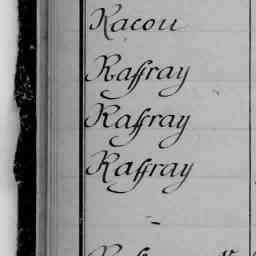 Racou
Raffray
Raffray
Raffray